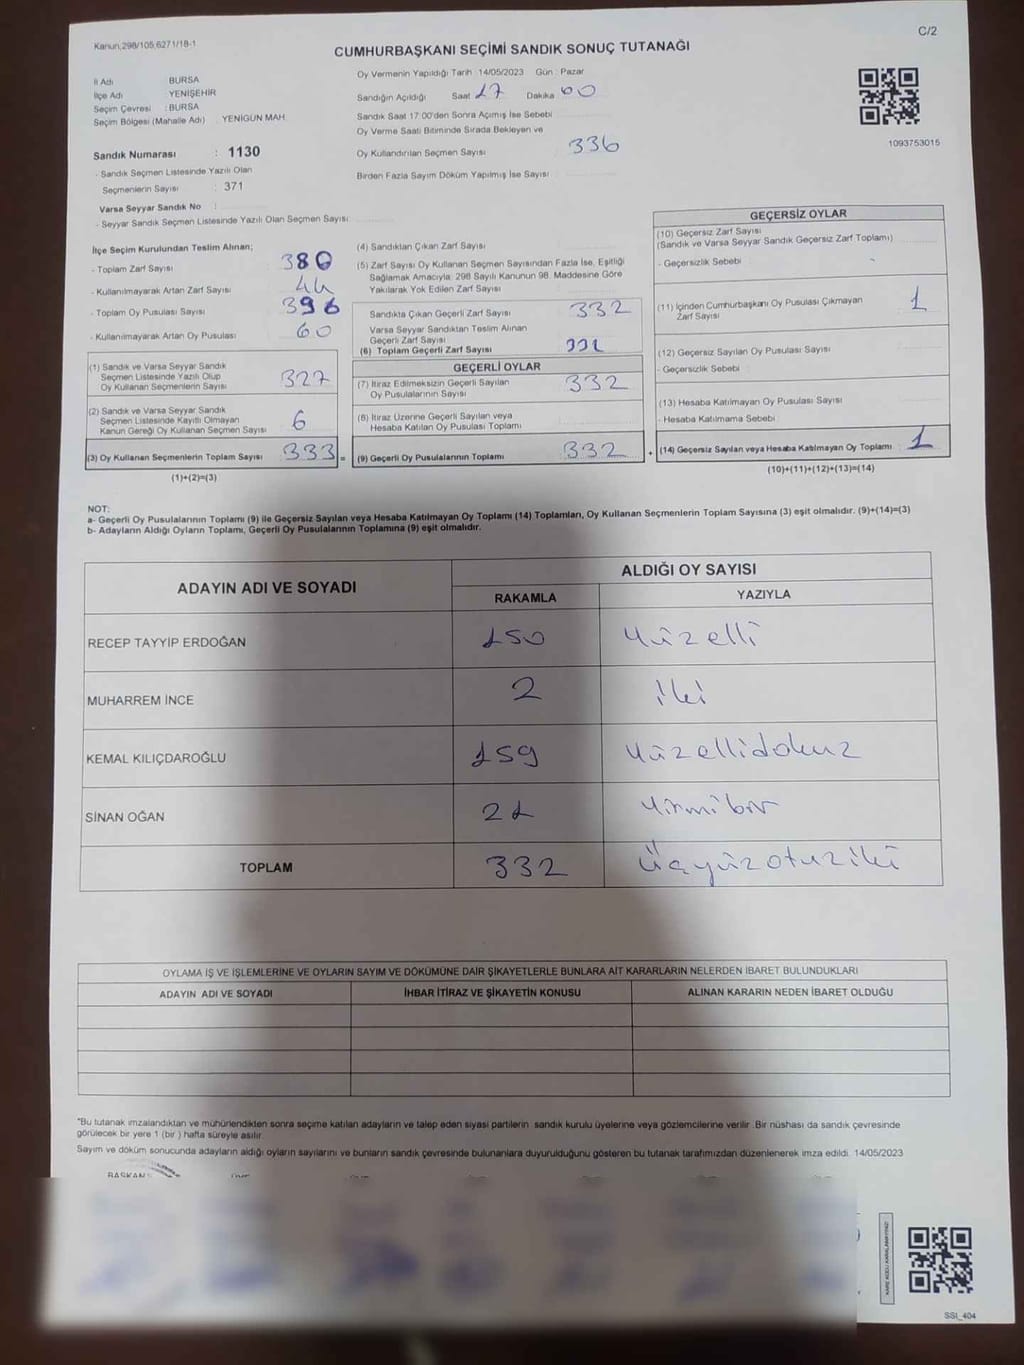 Kanun,298/105,6271/18-1
C/2
CUMHURBAŞKANI SEÇİMİ SANDIK SONUÇ TUTANAĞI
İl Adı BURSA
İlçe Adı YENİŞEHİR
Seçim Çevresi : BURSA
Seçim Bölgesi (Mahalle Adı) . YENİGÜN MAH.
Sandık Numarası : 1130
- Sandık Seçmen Listesinde Yazılı Olan
Seçmenlerin Sayısı : 371
Varsa Seyyar Sandık No :
- Seyyar Sandık Seçmen Listesinde Yazılı Olan Seçmen Sayısı:
Oy Vermenin Yapıldığı Tarih : 14/05/2023 Gün : Pazar
Sandığın Açıldığı Saat 17 Dakika 00
Sandık Saat 17:00'den Sonra Açımış İse Sebebi
Oy Verme Saati Bitiminde Sırada Bekleyen ve
Oy Kullandırılan Seçmen Sayısı 336
Birden Fazla Sayım Döküm Yapılmış İse Sayısı
1093753015
İlçe Seçim Kurulundan Teslim Alınan;
- Toplam Zarf Sayısı 380
- Kullanılmayarak Artan Zarf Sayısı 44
- Toplam Oy Pusulası Sayısı 396
- Kullanılmayarak Artan Oy Pusulası 60
(1) Sandık ve Varsa Seyyar Sandık
Seçmen Listesinde Yazılı Olup
Oy Kullanan Seçmenlerin Sayısı 327
(2) Sandık ve Varsa Seyyar Sandık
Seçmen Listesinde Kayıtlı Olmayan
Kanun Gereği Oy Kullanan Seçmen Sayısı 6
(3) Oy Kullanan Seçmenlerin Toplam Sayısı 333 =
(1)+(2)=(3)
(4) Sandıktan Çıkan Zarf Sayısı
(5) Zarf Sayısı Oy Kullanan Seçmen Sayısından Fazla İse, Eşitliği
Sağlamak Amacıyla, 298 Sayılı Kanunun 98. Maddesine Göre
Yakılarak Yok Edilen Zarf Sayısı
Sandıkta Çıkan Geçerli Zarf Sayısı 332
Varsa Seyyar Sandıktan Teslim Alınan
Geçerli Zarf Sayısı
(6) Toplam Geçerli Zarf Sayısı 332
GEÇERLİ OYLAR
(7) İtiraz Edilmeksizin Geçerli Sayılan
Oy Pusulalarının Sayısı 332
(8) İtiraz Üzerine Geçerli Sayılan veya
Hesaba Katılan Oy Pusulası Toplamı
(9) Geçerli Oy Pusulalarının Toplamı 332 +
GEÇERSİZ OYLAR
(10) Geçersiz Zarf Sayısı
(Sandık ve Varsa Seyyar Sandık Geçersiz Zarf Toplamı)
- Geçersizlik Sebebi :
(11) İçinden Cumhurbaşkanı Oy Pusulası Çıkmayan
Zarf Sayısı 1
(12) Geçersiz Sayılan Oy Pusulası Sayısı
- Geçersizlik Sebebi :
(13) Hesaba Katılmayan Oy Pusulası Sayısı
- Hesaba Katılmama Sebebi :
(14) Geçersiz Sayılan veya Hesaba Katılmayan Oy Toplamı 1
(10)+(11)+(12)+(13)=(14)
NOT:
a- Geçerli Oy Pusulalarının Toplamı (9) ile Geçersiz Sayılan veya Hesaba Katılmayan Oy Toplamı (14) Toplamları, Oy Kullanan Seçmenlerin Toplam Sayısına (3) eşit olmalıdır. (9)+(14)=(3)
b- Adayların Aldığı Oyların Toplamı, Geçerli Oy Pusulalarının Toplamına (9) eşit olmalıdır.
ADAYIN ADI VE SOYADI ALDIĞI OY SAYISI
RAKAMLA YAZIYLA
RECEP TAYYİP ERDOĞAN 150 Yüzelli
MUHARREM İNCE 2 iki
KEMAL KILIÇDAROĞLU 159 Yüzellidokuz
SİNAN OĞAN 21 Yirmibir
TOPLAM 332 Üçyüzotuziki
OYLAMA İŞ VE İŞLEMLERİNE VE OYLARIN SAYIM VE DÖKÜMÜNE DAİR ŞİKAYETLERLE BUNLARA AİT KARARLARIN NELERDEN İBARET BULUNDUKLARI
ADAYIN ADI VE SOYADI İHBAR İTİRAZ VE ŞİKAYETİN KONUSU ALINAN KARARIN NEDEN İBARET OLDUĞU
*Bu tutanak imzalandıktan ve mühürlendikten sonra seçime katılan adayların ve talep eden siyasi partilerin sandık kurulu üyelerine veya gözlemcilerine verilir .Bir nüshası da sandık çevresinde
görülecek bir yere 1 (bir ) hafta süreyle asılır.
Sayım ve döküm sonucunda adayların aldığı oyların sayılarını ve bunların sandık çevresinde bulunanlara duyurulduğunu gösteren bu tutanak tarafımızdan düzenlenerek imza edildi. 14/05/2023
BAŞKAN
KARE KODU KARALAMAYINIZ!
SSİ_404